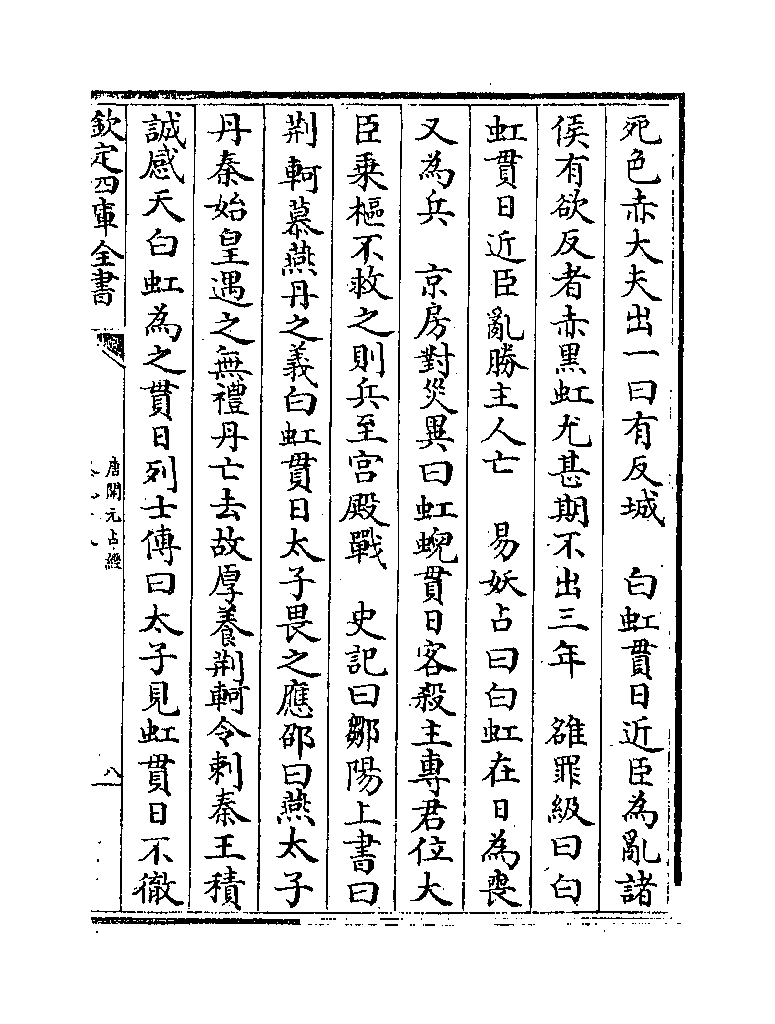 死色赤大夫出一曰有反城　白虹貫日近臣為亂諸
侯有欲反者赤黒虹尤甚期不出三年　雒罪級曰白
虹貫日近臣亂勝主人亡　易妖占曰白虹在日為喪
又為兵　京房對災異曰虹蜺貫日客殺主專君位大
臣乗樞不救之則兵至宫殿戰　史記曰鄒陽上書曰
荆軻慕燕丹之義白虹貫日太子畏之應邵曰燕太子
丹秦始皇遇之無禮丹亡去故厚養荆軻令刺秦王積
誠感天白虹為之貫日列士傳曰太子見虹貫日不徹
欽定四庫全書
唐開元占經
八